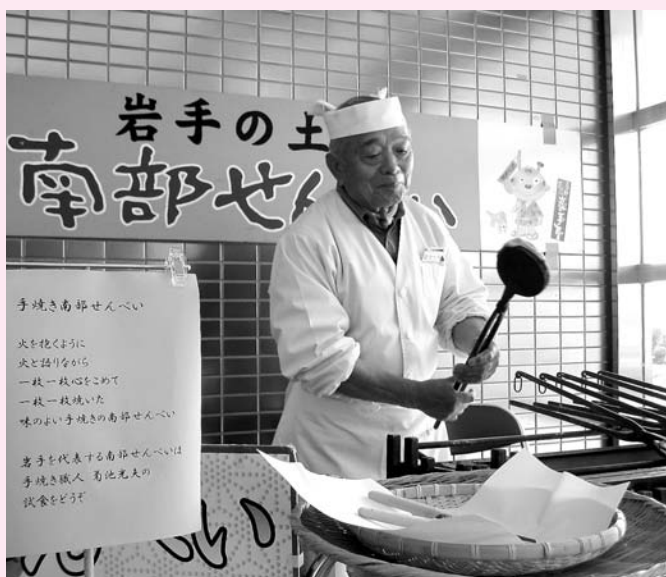 岩手の土
南部せんべい
手焼き南部せんべい
火を抱くように
火と語りながら
一枚一枚心をこめて
一枚一枚焼いた
味のよい手焼きの南部せんべい
岩手を代表する南部せんべいは
手焼き職人 菊池光夫の
試食をどうぞ
べい